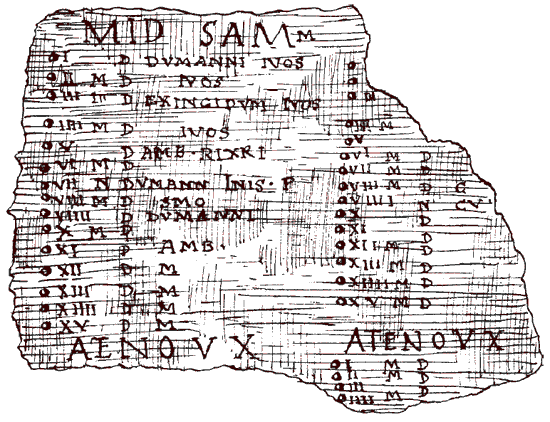 MID SAMM
I D DVMANNI IVOS
II M D IVOS
III D EXINGIDVM IVOS
IIII M D IVOS
V D AMB·RIXRI
VI M D
VII N DVMANN INIS·R
VIII M D SMO
VIIII D DVMANNI
X M D
XI D AMB·
XII D M
XIII D M
XIIII D M
XV D M
ATENOVX
N
IIII M
V
VI M D
VII M D
VIII M D G
VIIII N CV
X D
XI D
XII M D
XIII M D
XIIII M D
XV M D
ATENOVX
I M D
II M D
III D
IIII M D